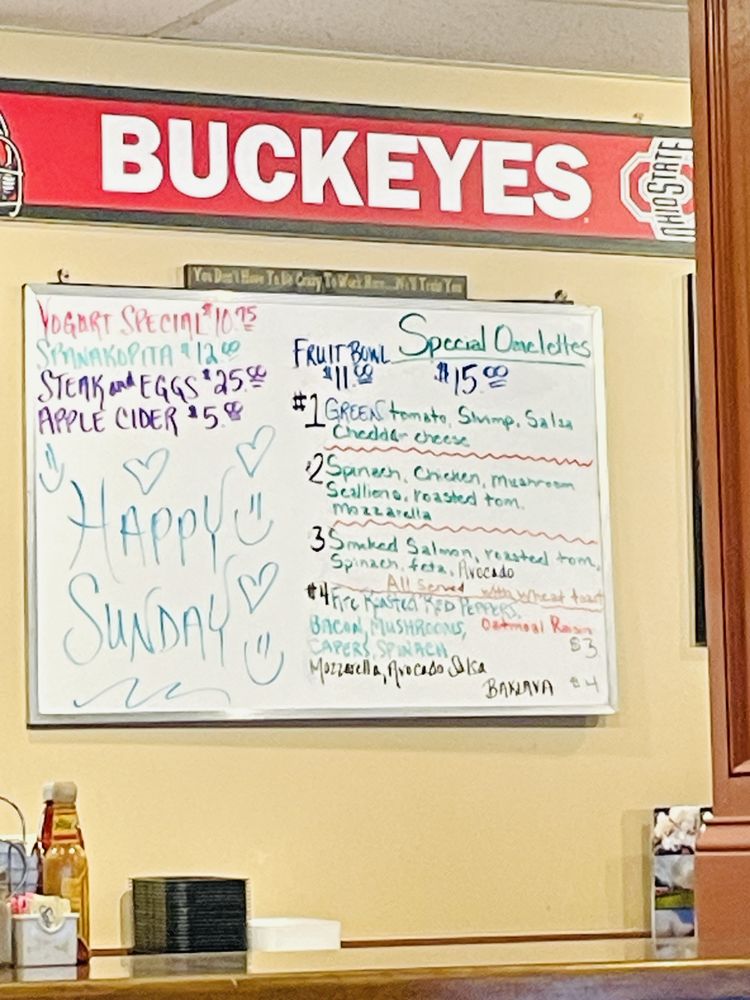 BUCKEYES
OHIO STATE
You Don't Have To Be Crazy To Work Here...We'll Train You
YOGART SPECIAL $10.95
SPANAKOPITA $12.00
STEAK and EGGS $25.00
APPLE CIDER $5.00
HAPPY
SUNDAY
FRUIT BOWL
$11.00
Special Omelettes
$15.00
#1 GREEN tomato, Shrimp, Salsa
Cheddar cheese
2 Spinach, Chicken, mushroom
Scallions, roasted tom.
mozzarella
3 Smoked Salmon, roasted tom,
Spinach, feta, Avocado
All Served with wheat toast
#4 Fire Roasted RED PEPPERS,
BACON, MUSHROOMS,
CAPERS, SPINACH
Mozzarella, Avocado Salsa
Oatmeal Raisin
$3
BAKLAVA $4